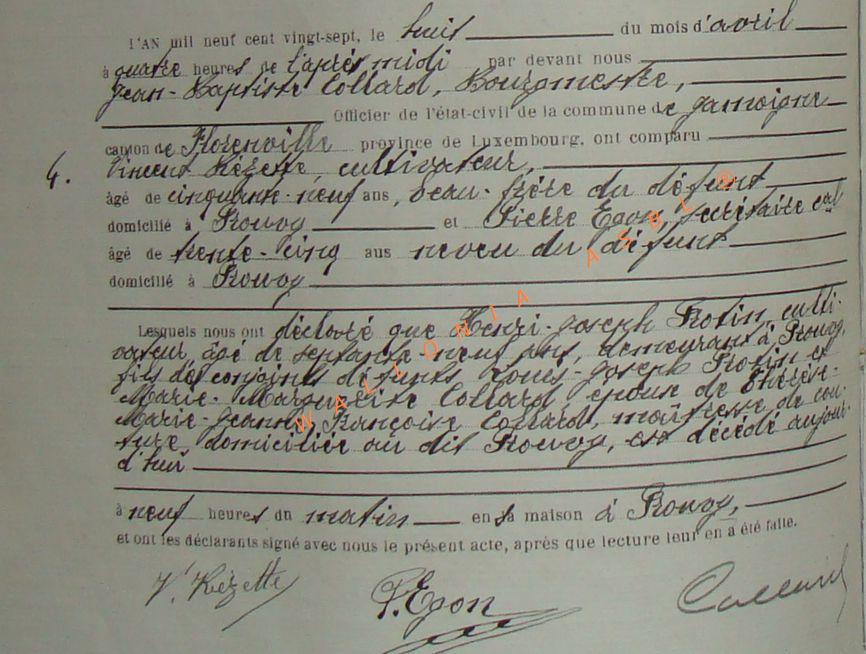 L'AN mil neuf cent vingt-sept, le huit du mois d'avril
à quatre heures de l'après midi par devant nous
Jean-Baptiste Collard, Bourgmestre,
Officier de l'état-civil de la commune de Jamoigne
canton de Florenville province de Luxembourg, ont comparu
4. Vincent Hézette, cultivateur,
âgé de cinquante-neuf ans, beau-frère du défunt
domicilié à Prouvy et Pierre Egon, secrétaire cal
âgé de trente-cinq ans neveu du défunt
domicilié à Prouvy
Lesquels nous ont déclaré que Henri-Joseph Protin, culti-
vateur, âgé de septante-neuf ans, demeurant à Prouvy,
fils des conjoints défunts Louis-Joseph Protin et
Marie-Marguerite Collard époux de Thérèse-
Marie-Jeanne Françoise Collard, maîtresse de cou-
ture domiciliée au dit Prouvy, est décédé aujour-
d'hui
à neuf heures du matin en sa maison à Prouvy,
et ont les déclarants signé avec nous le présent acte, après que lecture leur en a été faite.
V. Hézette P. Egon Collard
WALLONIA ASBL ®